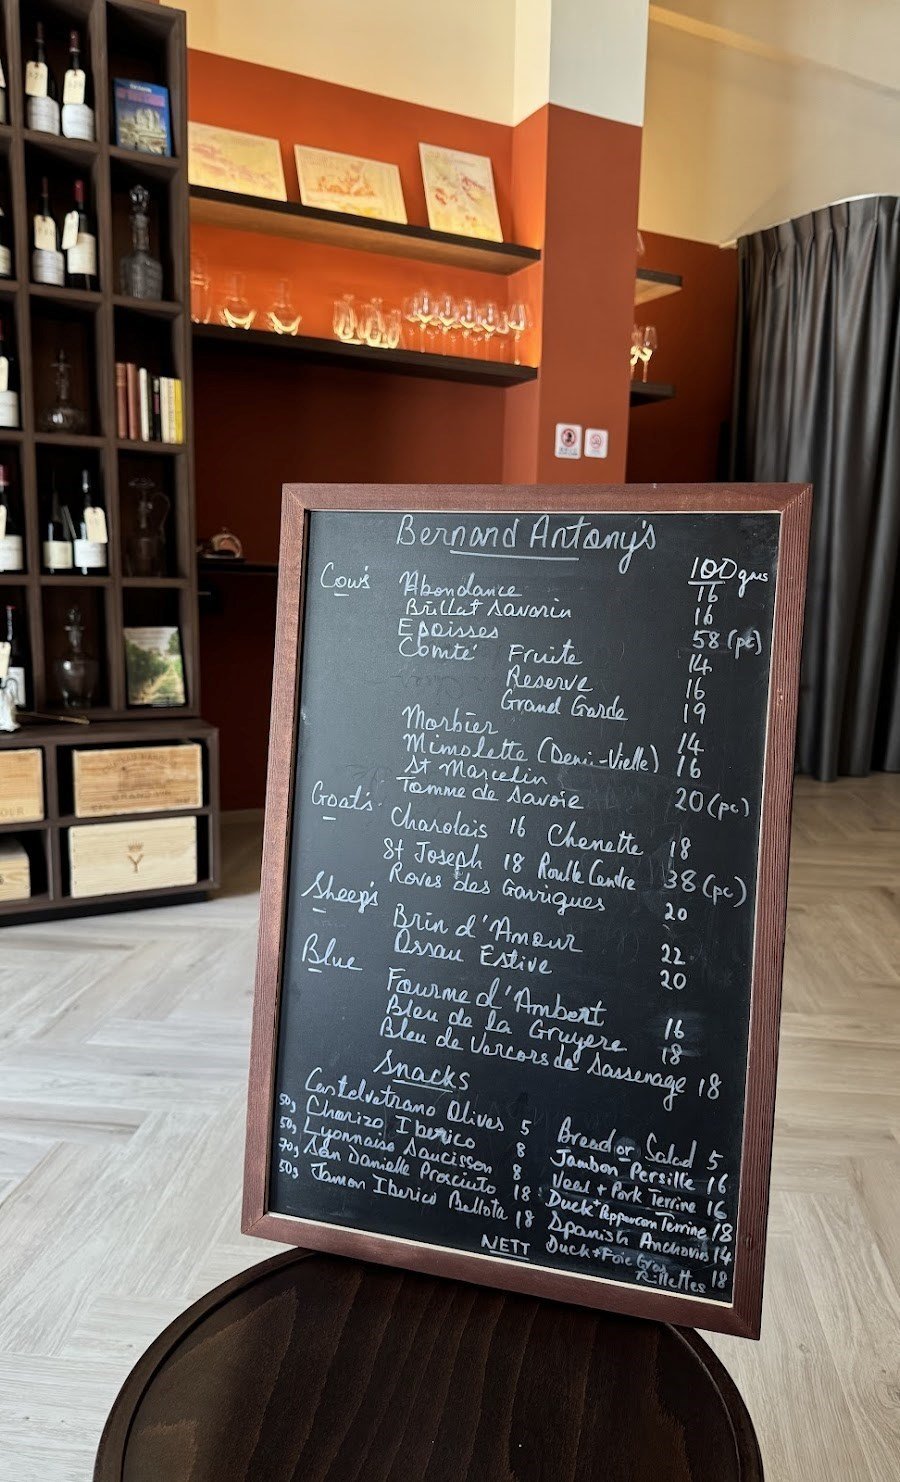 Bernard Antony's
100gms
Cow's Abondance 16
Brillat Savarin 16
Epoisses 58 (pc)
Comté Fruite 14
Reserve 16
Grand Garde 19
Morbier 14
Mimolette (Demi-Vielle) 16
St Marcelin 20 (pc)
Tomme de Savoie
Goat's
Charolais 16 Chevrette 18
St Joseph 18 Roulle Cendre 38 (pc)
Roves des Garrigues 20
Sheep's
Brin d'Amour 22
Ossau Estive 20
Blue
Fourme d'Ambert 16
Bleu de la Gruyere 18
Bleu de Vercors de Sassenage 18
Snacks
Castelvetrano Olives 5
50g Chorizo Iberico 8
50g Lyonnaise Saucisson 8
70g San Danielle Prosciuto 18
50g Jamon Iberico Bellota 18
Bread or Salad 5
Jambon Persille 16
Veal + Pork Terrine 16
Duck Peppercorn Terrine 18
Spanish Anchovies 14
Duck + Foie Gras Rillettes 18
NETT
GRAND VIN
Y